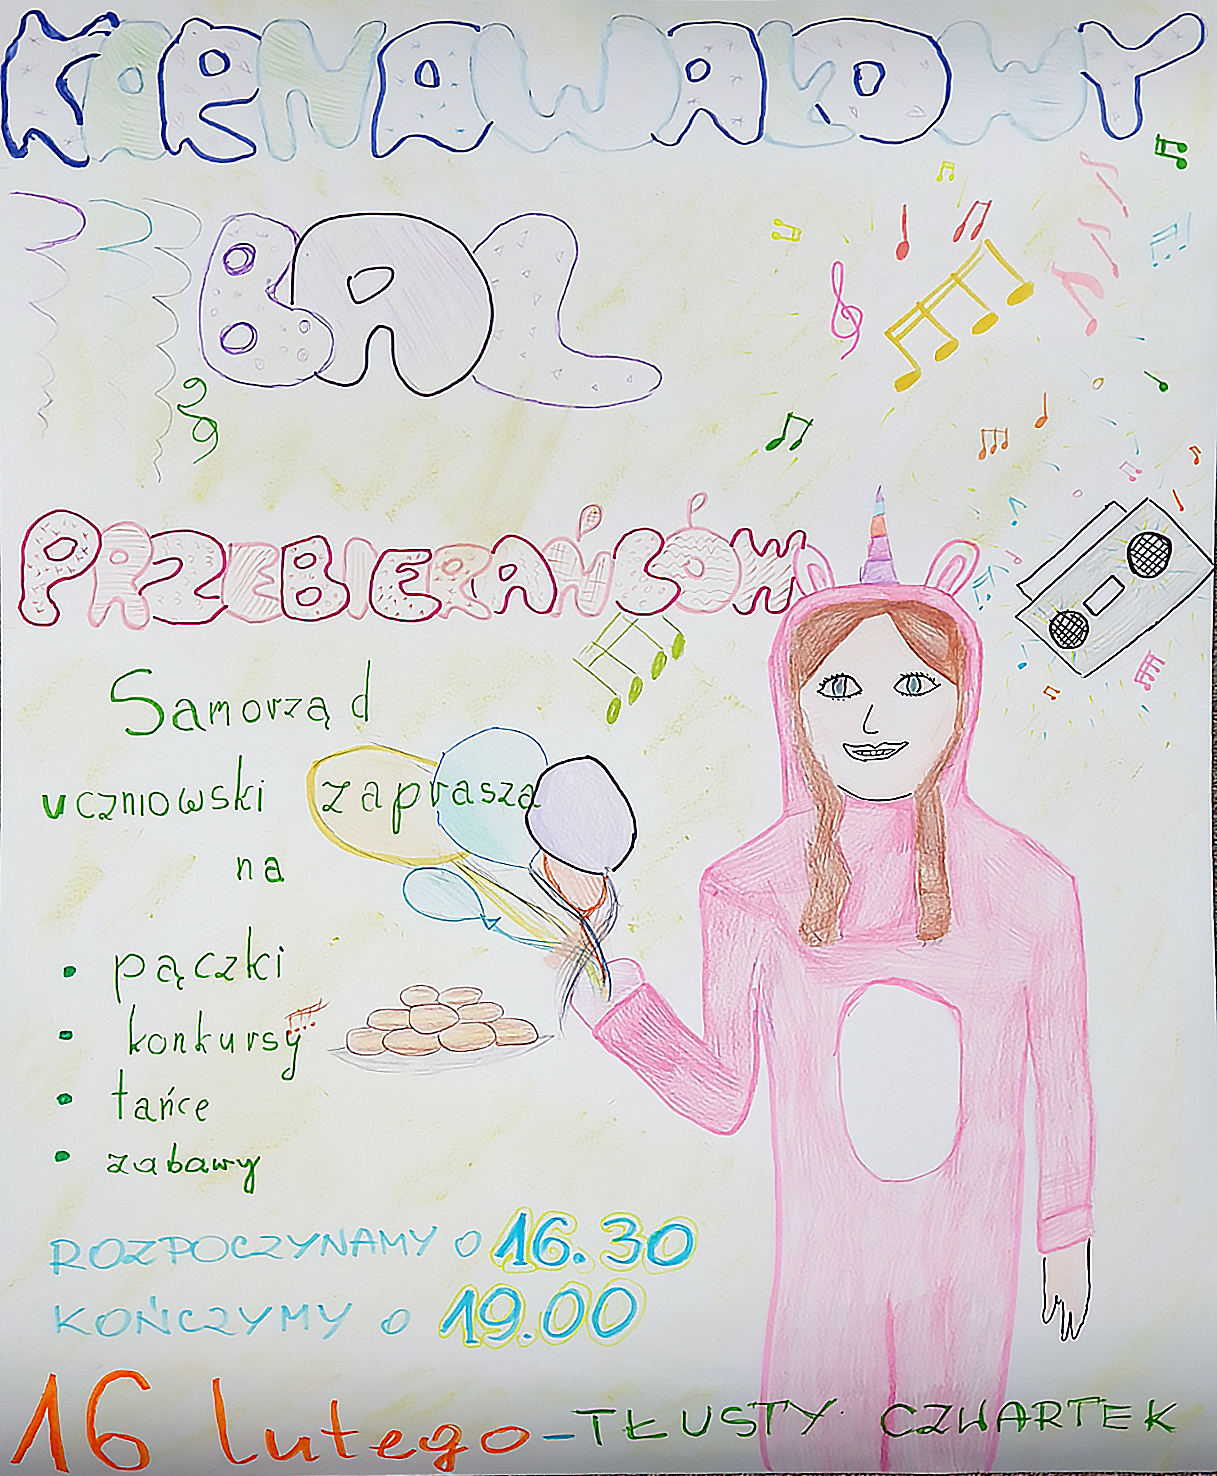 KARNAWAŁOWY
BAL
PRZEBIERAŃCÓW
Samorząd
uczniowski zaprasza
na
• pączki
• konkursy
• tańce
• zabawy
ROZPOCZYNAMY O 16.30
KOŃCZYMY O 19.00
16 lutego - TŁUSTY CZWARTEK